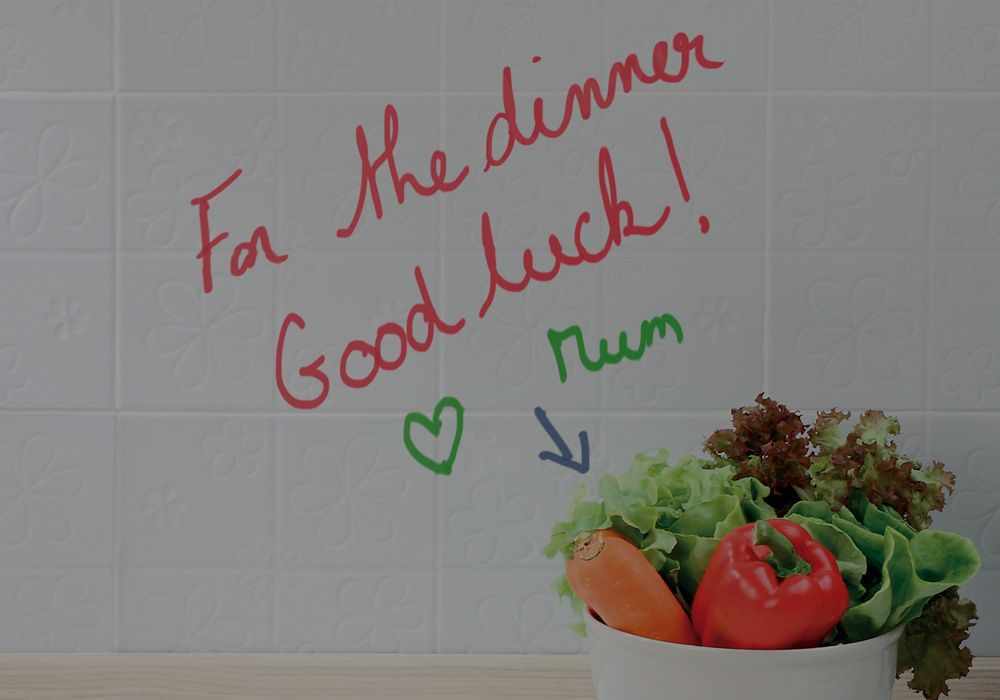 For the dinner
Good luck!
Mum